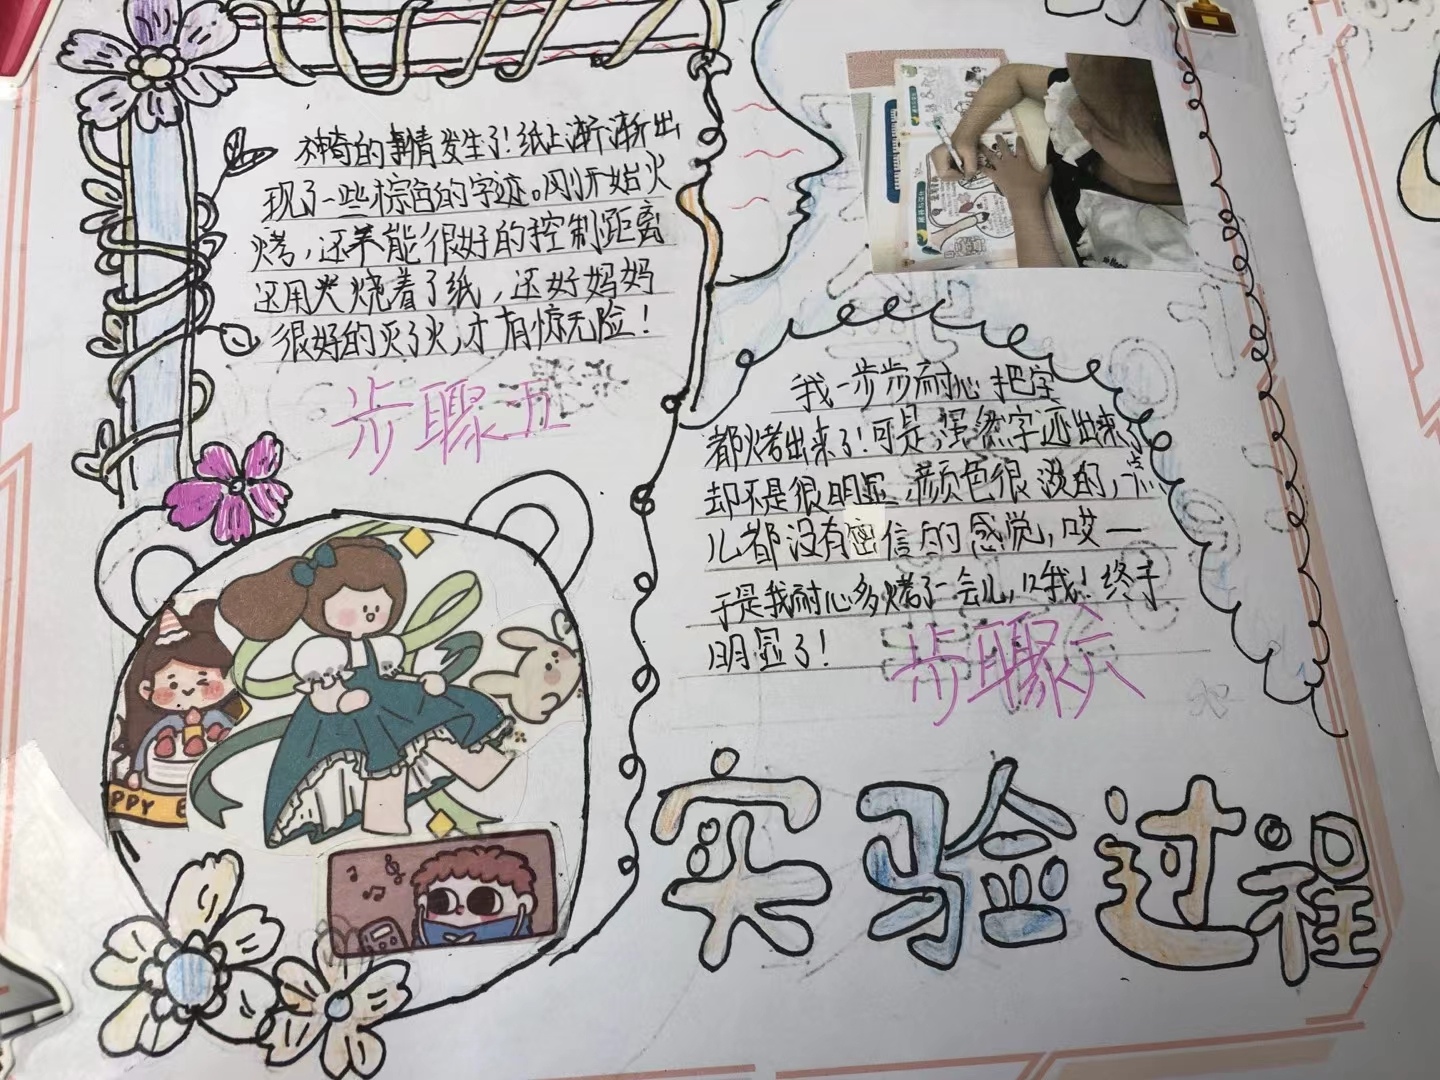 神奇的事情发生了!纸上渐渐出
现了一些棕色的字迹。刚开始火
烤,还不能很好的控制距离
还用火烧着了纸,还好妈妈
很好的灭了火,才有惊无险!
步骤五
我一步步耐心把字
都烤出来了!可是虽然字迹出来了
却不是很明显,颜色很淡的,一点
儿都没有密信的感觉,哎一
于是我耐心多烤了一会儿,哦!终于
明显了!
步骤六
PPY
实验过程